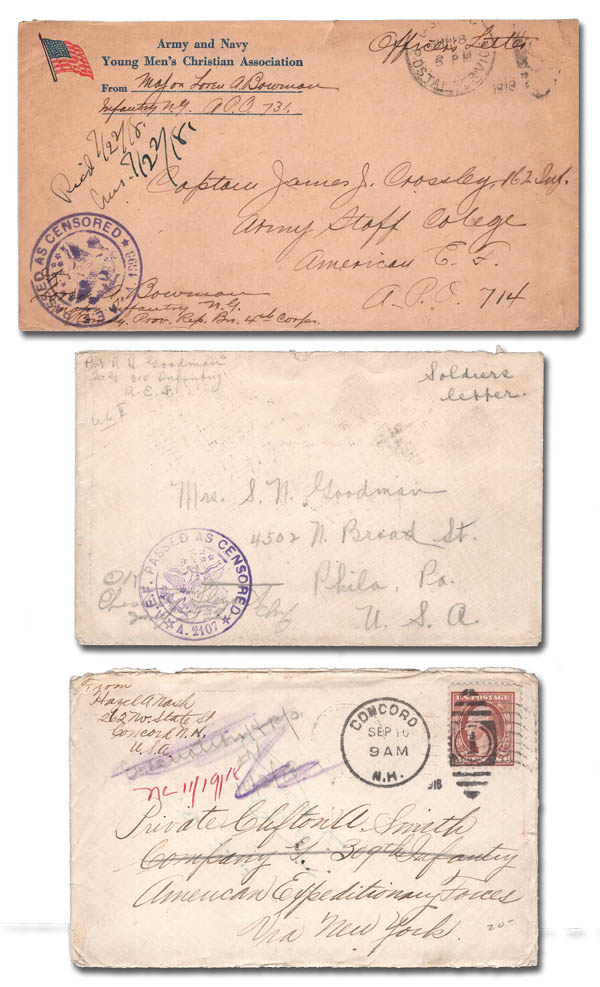 Army and Navy
Young Men's Christian Association
From Major Loren A. Bowman
Infantry N.G. A.P.O. 731.
Officers Letter
POSTAL SERVICE
6 PM
1918
Rec'd 7/22/18.
Ans. 7/22/18.
Captain James J. Crossley, 162 Inf.
Army Staff Colege
American E. F.
A.P.O. 714
PASSED AS CENSORED
A.E.F.
Bowman
Infantry N.G.
Prov. Rep. Bn. 4th Corps.
R H Goodman
316 Infantry
A.E.F.
Soldiers
letter.
Mrs. S. N. Goodman
4502 N. Broad St.
Phila, Pa.
U. S. A.
A.E.F. PASSED AS CENSORED
A. 2107
OK
From
Hazel A Nash
262 No. State St
Concord N.H.
U.S.A
CONCORD
SEP 10
9 AM
N.H.
1918
U.S. POSTAGE
11/19/18
Private Clifton A. Smith
Company G, 309th Infantry
American Expeditionary Forces
Via New York.